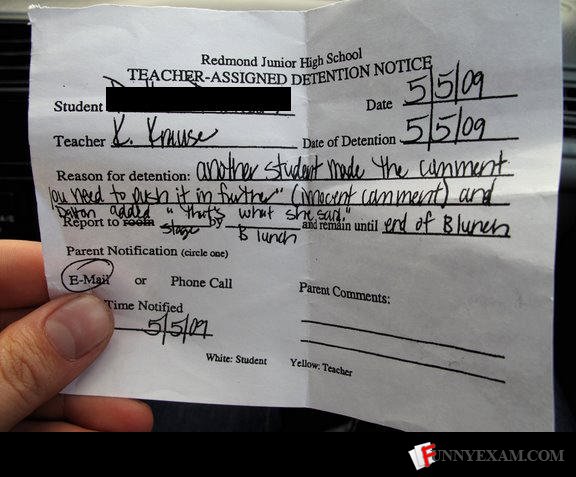 Redmond Junior High School
TEACHER-ASSIGNED DETENTION NOTICE
Student Date 5/5/09
Teacher K. Krause Date of Detention 5/5/09
Reason for detention: another student made the comment
"you need to push it in further" (innocent comment) and
added "that's what she said."
Report to room stage by B lunch and remain until end of B lunch
Parent Notification (circle one)
E-Mail or Phone Call
Parent Comments:
Time Notified
5/5/09
White: Student Yellow: Teacher
FUNNYEXAM.COM